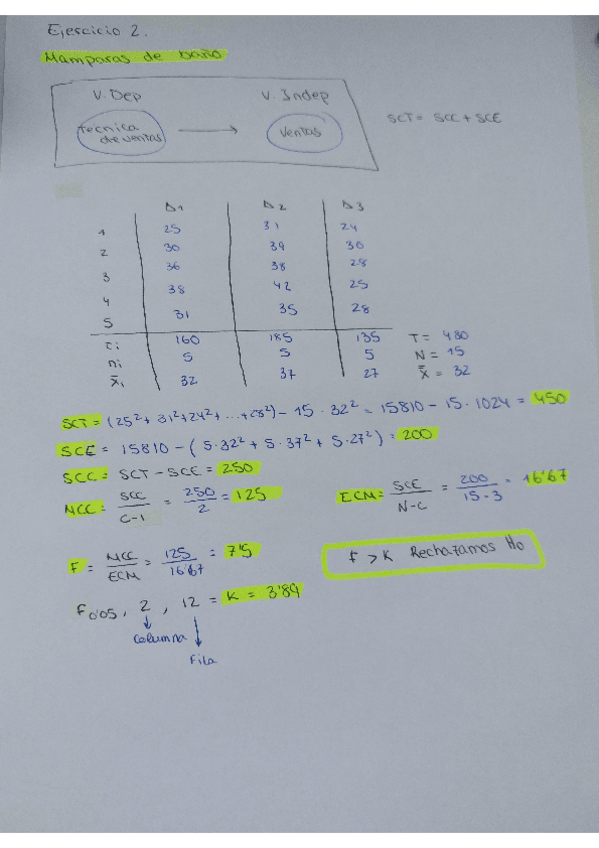 Ejercicio 2.
Mamparas de baño
V. Dep V. Indep
técnica de ventas → ventas
SCT = SCC + SCE
Δ1 Δ2 Δ3
1 25 31 24
2 30 39 30
3 36 38 28
4 38 42 25
5 31 35 28
τi 160 185 135 T = 480
ni 5 5 5 N = 15
x̄i 32 37 27 x̄ = 32
SCT = (25² + 31² + 24² + ... + 28²) - 15 · 32² = 15810 - 15 · 1024 = 450
SCE = 15810 - (5·32² + 5·37² + 5·27²) = 200
SCC = SCT - SCE = 250
MCC = SCC / C-1 = 250 / 2 = 125
ECM = SCE / N-C = 200 / 15-3 = 16'67
F = MCC / ECM = 125 / 16'67 = 7'5
F > K Rechazamos Ho
F0'05, 2, 12 = K = 3'89
columna
Fila